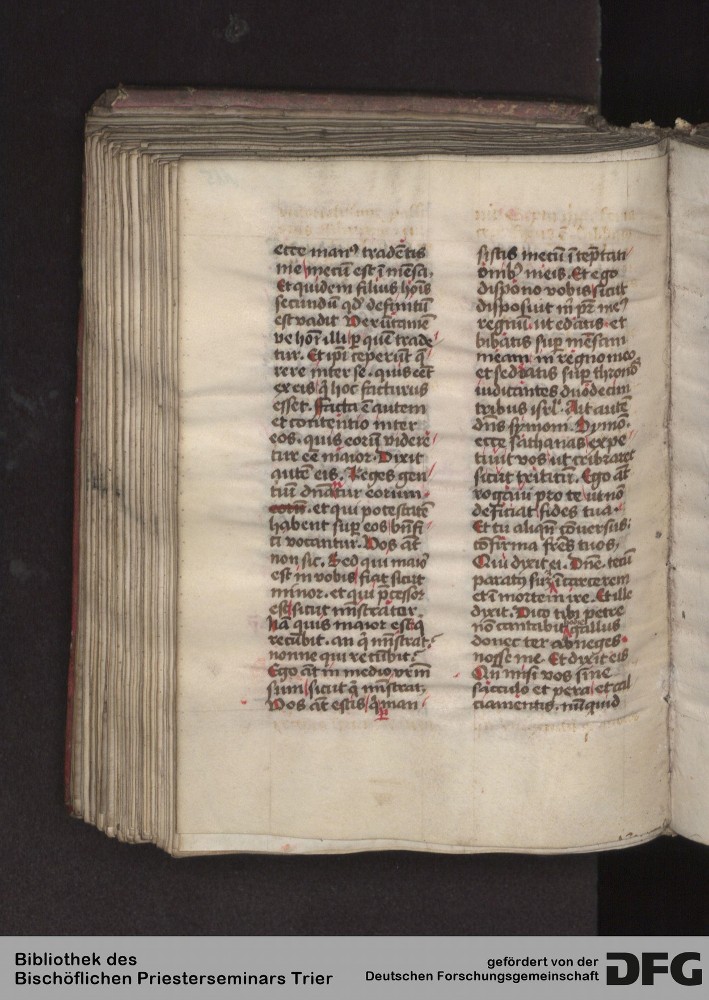 ecce manꝰ tradētis
me mecū est ī mēsa.
Et quidem filius hoīs
secundū qd̄ definitū
est vadit Verūtamē
ve hoī illi ꝑ quē trade
tur. Et ip̄i ceperūt q̄
rere inter se. quis eēt
ex eis q̇ hoc facturus
esset. Facta ē autem
et contentio inter
eos. quis eorū viderē
tur eē maior. Dixit
autē eis. Reges gen
tiū dn̄antur eorum.
eorū. et qui potestatē
habent sup̄ eos bn̄fi
ci vocantur. Vos aūt
non sic. Sed qui maior
est in vobis fiat sicut
minor. et qui p̄cessor
est sicut mīstrator.
Nā quis maior est q̇
recūbit. an q̇ mīstrat.
nonne qui recūbit.
Ego aūt in medio vr̄m
sum sicut q̇ mīstrat.
Vos aūt estis q̇ ꝑman
sistis mecū ī tēptati
ōnibꝰ meis. Et ego
dispono vobis sicut
disposuit m̄ pr̄ meꝰ
regnū. ut edatis et
bibatis sup̄ mēsam
meam in regno meo
et sedeatis sup̄ thronos
iudicantes duodecim
tribus isrl̄. Ait autē
dn̄s symoni. Symō.
ecce sathanas expe
tiuit vos ut cribraret
sicut triticū. Ego aūt
rogaui pro te ut nō
deficiat fides tua.
Et tu aliqn̄ cōversus
cōfirma fr̄es tuos.
Qui dixit ei. Dn̄e. tecū
paratꝰ sum ī carcerem
et ī mortem ire. Et ille
dixit. Dico tibi petre
nō cantabit hodie gallus
donec ter abneges
nosse me. Et dixit eis
Qn̄ misi vos sine
sacculo et pera et cal
ciamentis. nūquid
Bibliothek des
Bischöflichen Priesterseminars Trier
gefördert von der
Deutschen Forschungsgemeinschaft
DFG